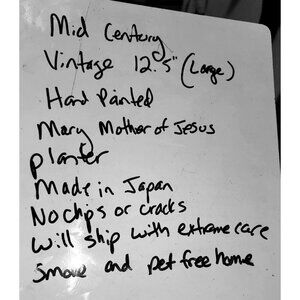 Mid Century
Vintage 12.5" (Large)
Hand Painted
Mary Mother of Jesus
planter
Made in Japan
No chips or cracks
will ship with extreme care
Smoke and pet free home